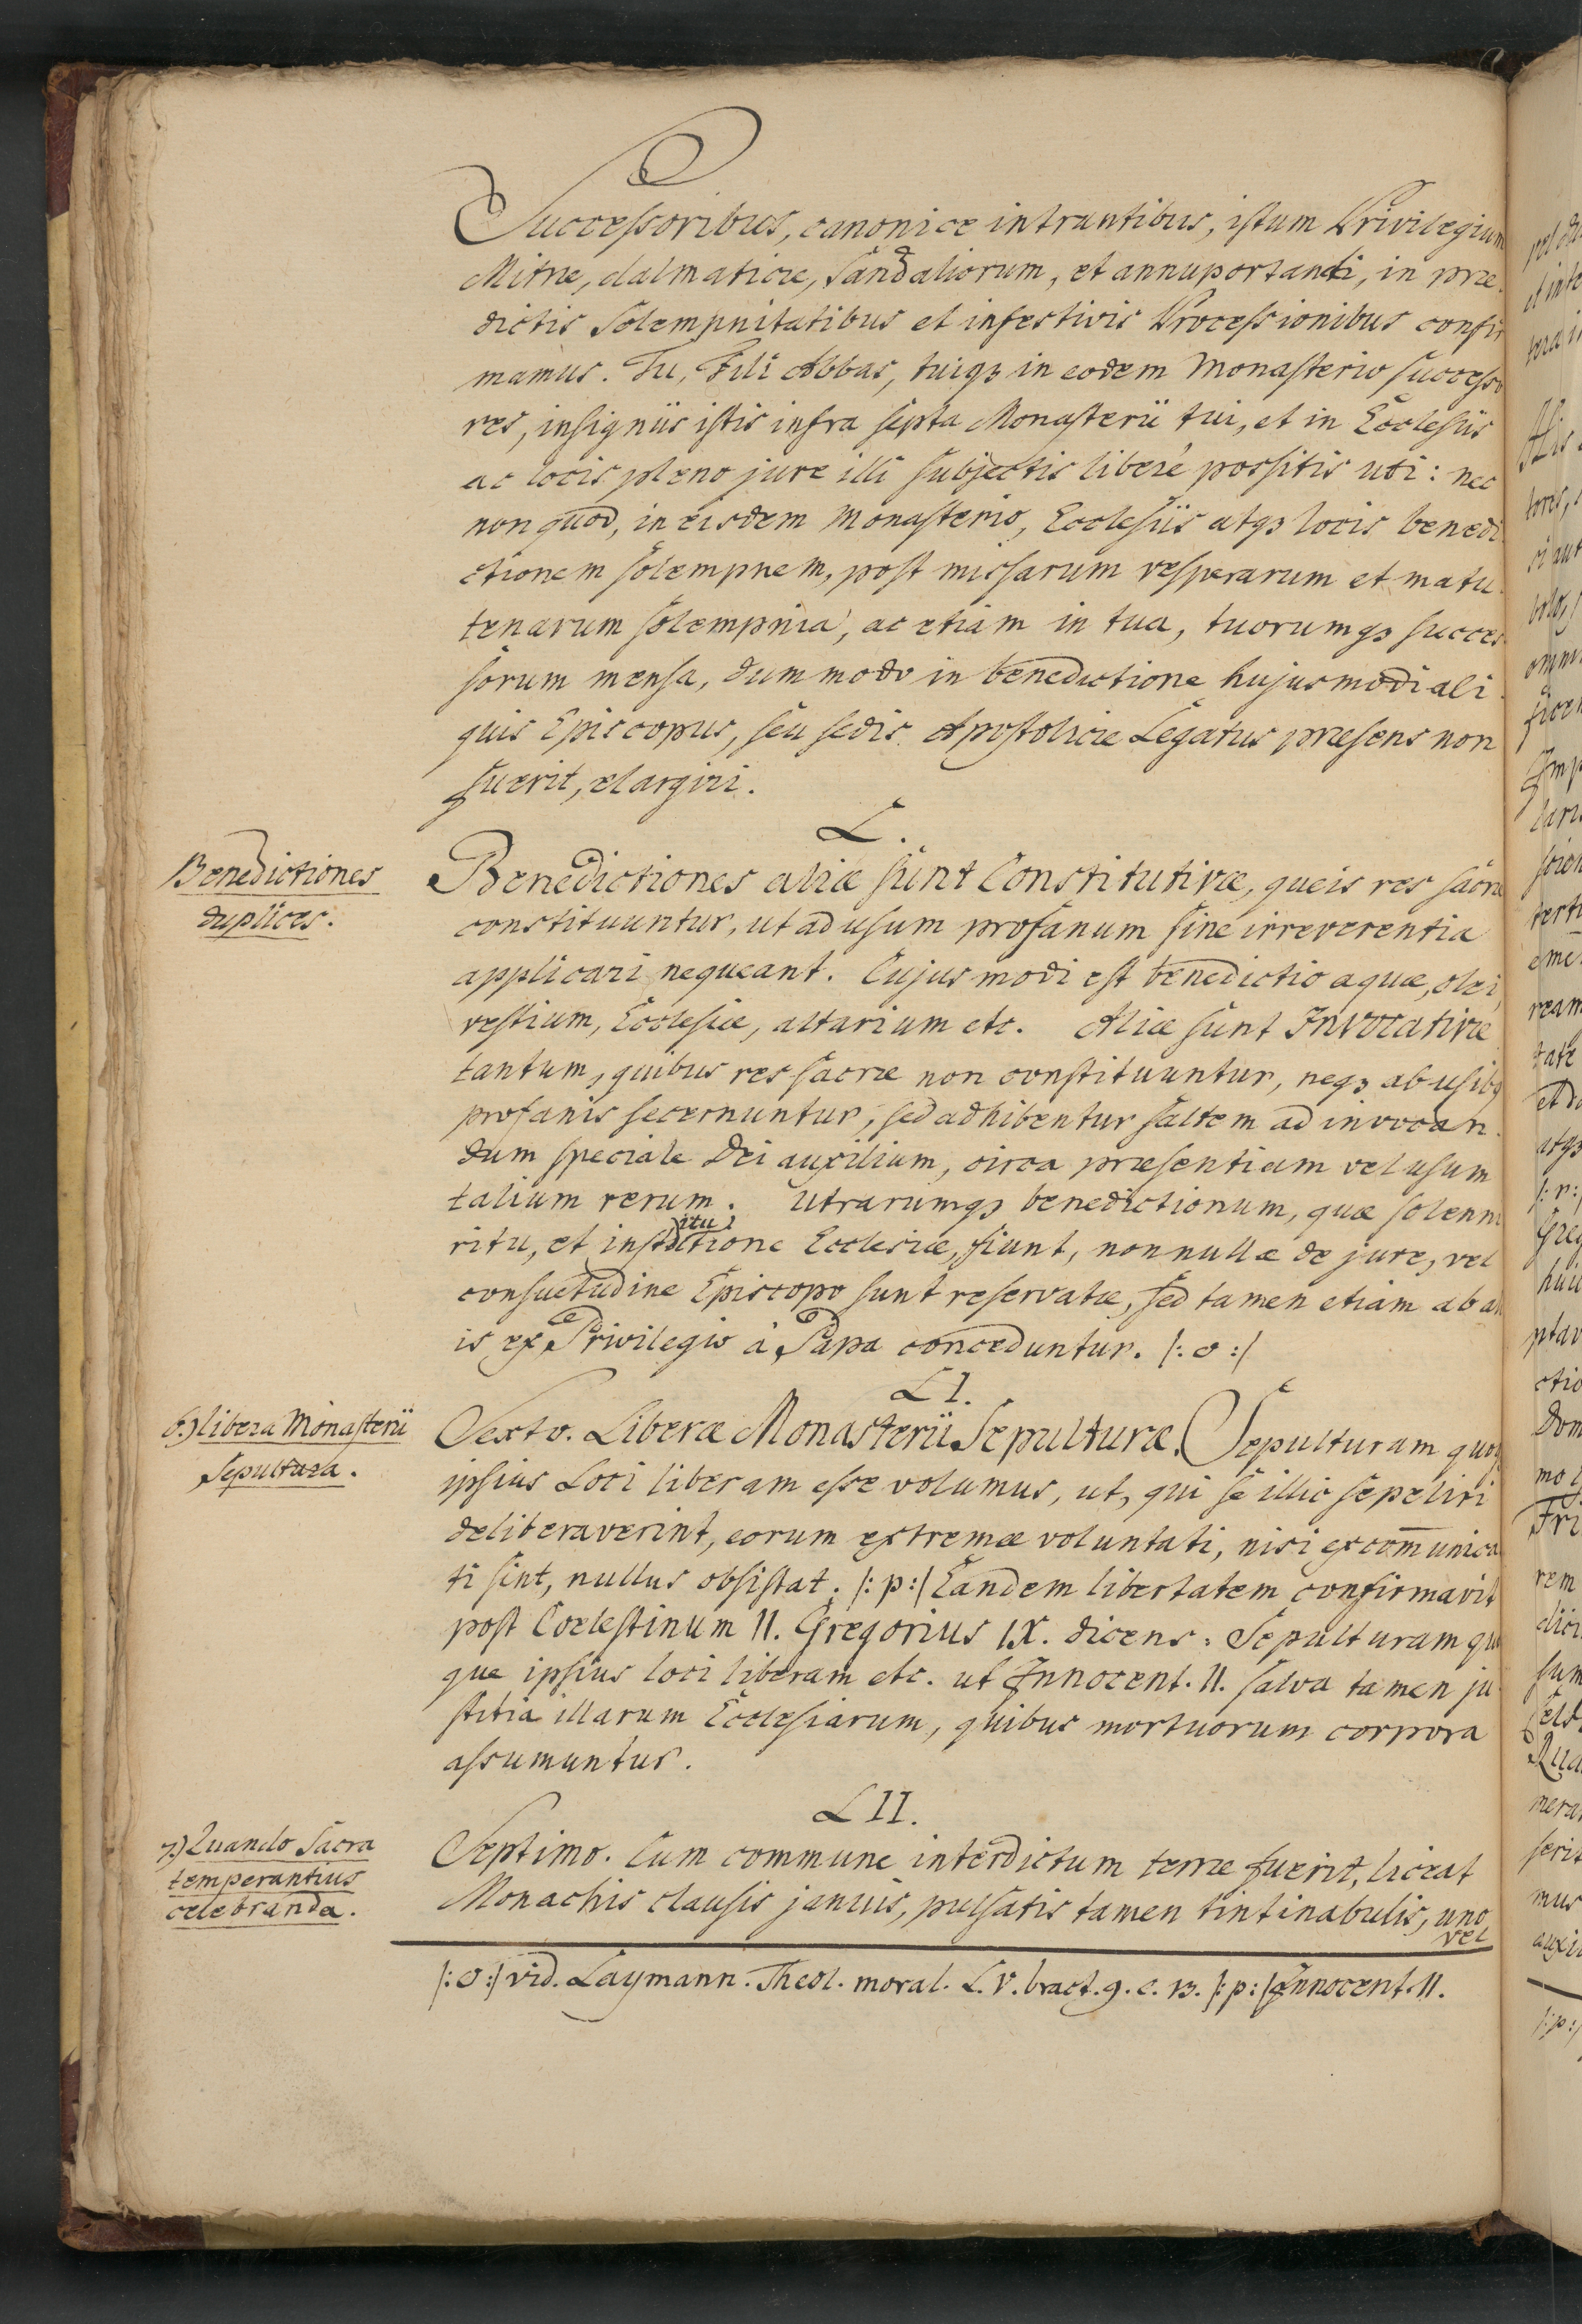 Successoribus, canonice intrantibus, istum Privilegium
Mitræ, dalmaticæ, sandaliorum, et annuportandi, in præ-
dictis solempnitatibus et infestivis Processionibus confir
mamus. Tu, Fili Abbas, tuiqȝ in eodem Monasterio successo
res, insigniis istis infra septa Monasterii tui, et in Ecclesiis
ac locis pleno jure illi subjectis liberè possitis uti: nec
non quod, in eisdem Monasterio, Ecclesiis atqȝ locis benedi
ctionem solempnem, post missarum vesperarum et matu-
tenarum solempnia, ac etiam in tua, tuorumqȝ succes
sorum mensa, dummodo in benedictione hujusmodi ali-
quis Episcopus, seu sedis Apostolicæ Legatus præsens non
fuerit, elargiri.
L.
Benedictiones
duplices.
Benedictiones aliæ sunt Constitutivæ, queis res sacræ
constituuntur, ut ad usum profanum sine irreverentia
applicari nequeant. Cujusmodi est benedictio aquæ, olei,
vestium, Ecclesiæ, altarium etc. Aliæ sunt Invocativæ
tantum, quibus res sacræ non constituuntur, neqȝ ab usibȝ
profanis secernuntur, sed adhibentur saltem ad invocan-
dum speciale Dei auxilium, circa præsentiam vel usum
talium rerum. Utrarumqȝ benedictionum, quæ solenni
ritu, et institutione Ecclesiæ, fiunt, nonnullæ de jure, vel
consuetudine Episcopo sunt reservatæ, sed tamen etiam ab al
is ex Privilegio à Papa conceduntur. /: o :/
LI.
6.) libera Monasterii
Sepultura.
Sexto. Liberæ Monasterii Sepulturæ. Sepulturam quoqȝ
ipsius Loci liberam esse volumus, ut, qui se illic sepeliri
deliberaverint, eorum extremæ voluntati, nisi excom̄unica
ti sint, nullus obsistat. /: p :/ Eandem libertatem confirmavit
post Coelestinum II. Gregorius IX. dicens: Sepulturam quo
que ipsius loci liberam etc. ut Innocent. II. salva tamen ju-
stitia illarum Ecclesiarum, quibus mortuorum corpora
assumuntur.
LII.
7.) Quando Sacra
temperantius
celebranda.
Septimo. Cum commune interdictum terræ fuerit, liceat
Monachis clausis januis, pulsatis tamen tintinabulis, uno
vel
/: o :/ vid. Laymann. Theol. moral. L. V. tract. 9. c. 13. /: p :/ Innocent. II.